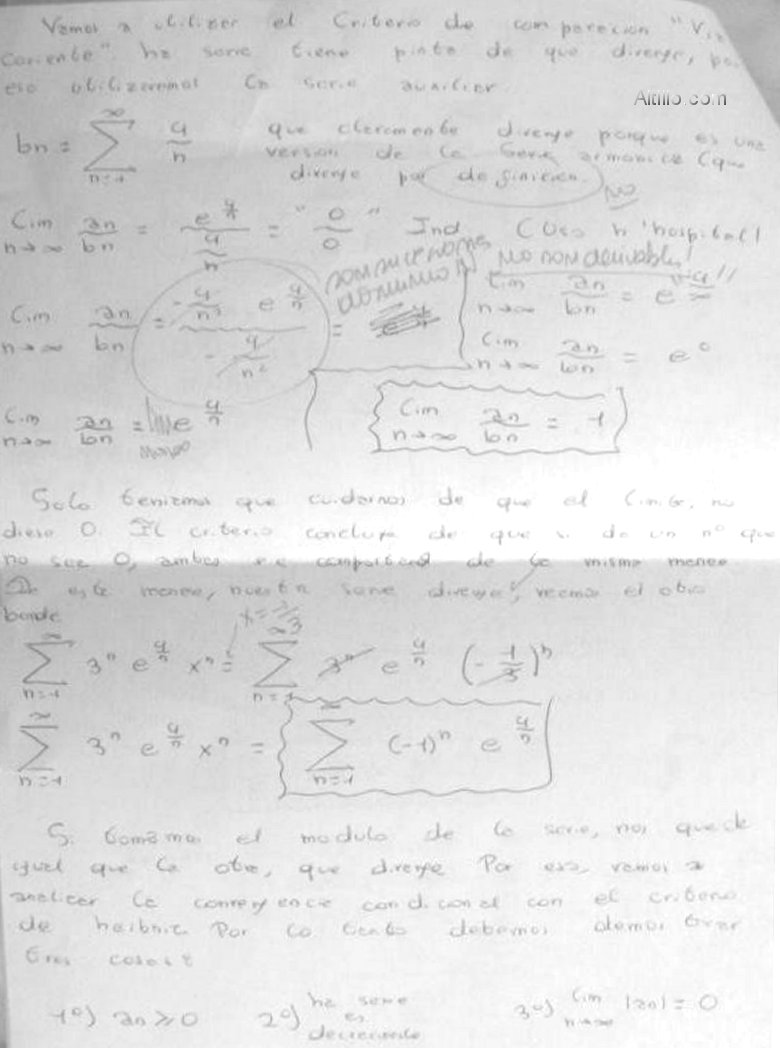 Vamos a utilizar el Criterio de comparacion "Via
Cociente". La serie tiene pinta de que diverge, por
eso utilizaremos la serie auxiliar.
Altillo.com
bn = ∑ n=1 ∞ 4/n que claramente diverge porque es una
version de la serie armonica (que
diverge por definicion.)
NO
Lim n→∞ an/bn = = "0/0" Ind (Uso L'hospital)
NO SON derivables!
SON SUCESIONES
DOMINIO N
Lim n→∞ an/bn = (-4/n² e^(4/n))/(-4/n²) =
Lim n→∞ an/bn = e^"4/∞"
Lim n→∞ an/bn = e^0
Lim n→∞ an/bn = lim n→∞ e^(4/n)
Lim n→∞ an/bn = 1
Solo teniamos que cuidarnos de que el limite, no
diese 0. El criterio concluye de que si da un nº que
no sea 0, ambas se comportan de la misma manera
De esta manera, nuestra serie diverge, veamos el otro
borde
∑ n=1 ∞ 3^n e^(4/n) x^n = ∑ n=1 ∞ 3^n e^(4/n) (-1/3)^n
∑ n=1 ∞ 3^n e^(4/n) x^n = ∑ n=1 ∞ (-1)^n e^(4/n)
Si tomamos el modulo de la serie, nos queda
igual que la otra, que diverge Por eso, vamos a
analizar la convergencia condicional con el criterio
de Leibniz Por lo tanto debemos demostrar
tres cosas:
1º) an ≥ 0 2º) La serie es decreciente 3º) Lim n→∞ |an| = 0